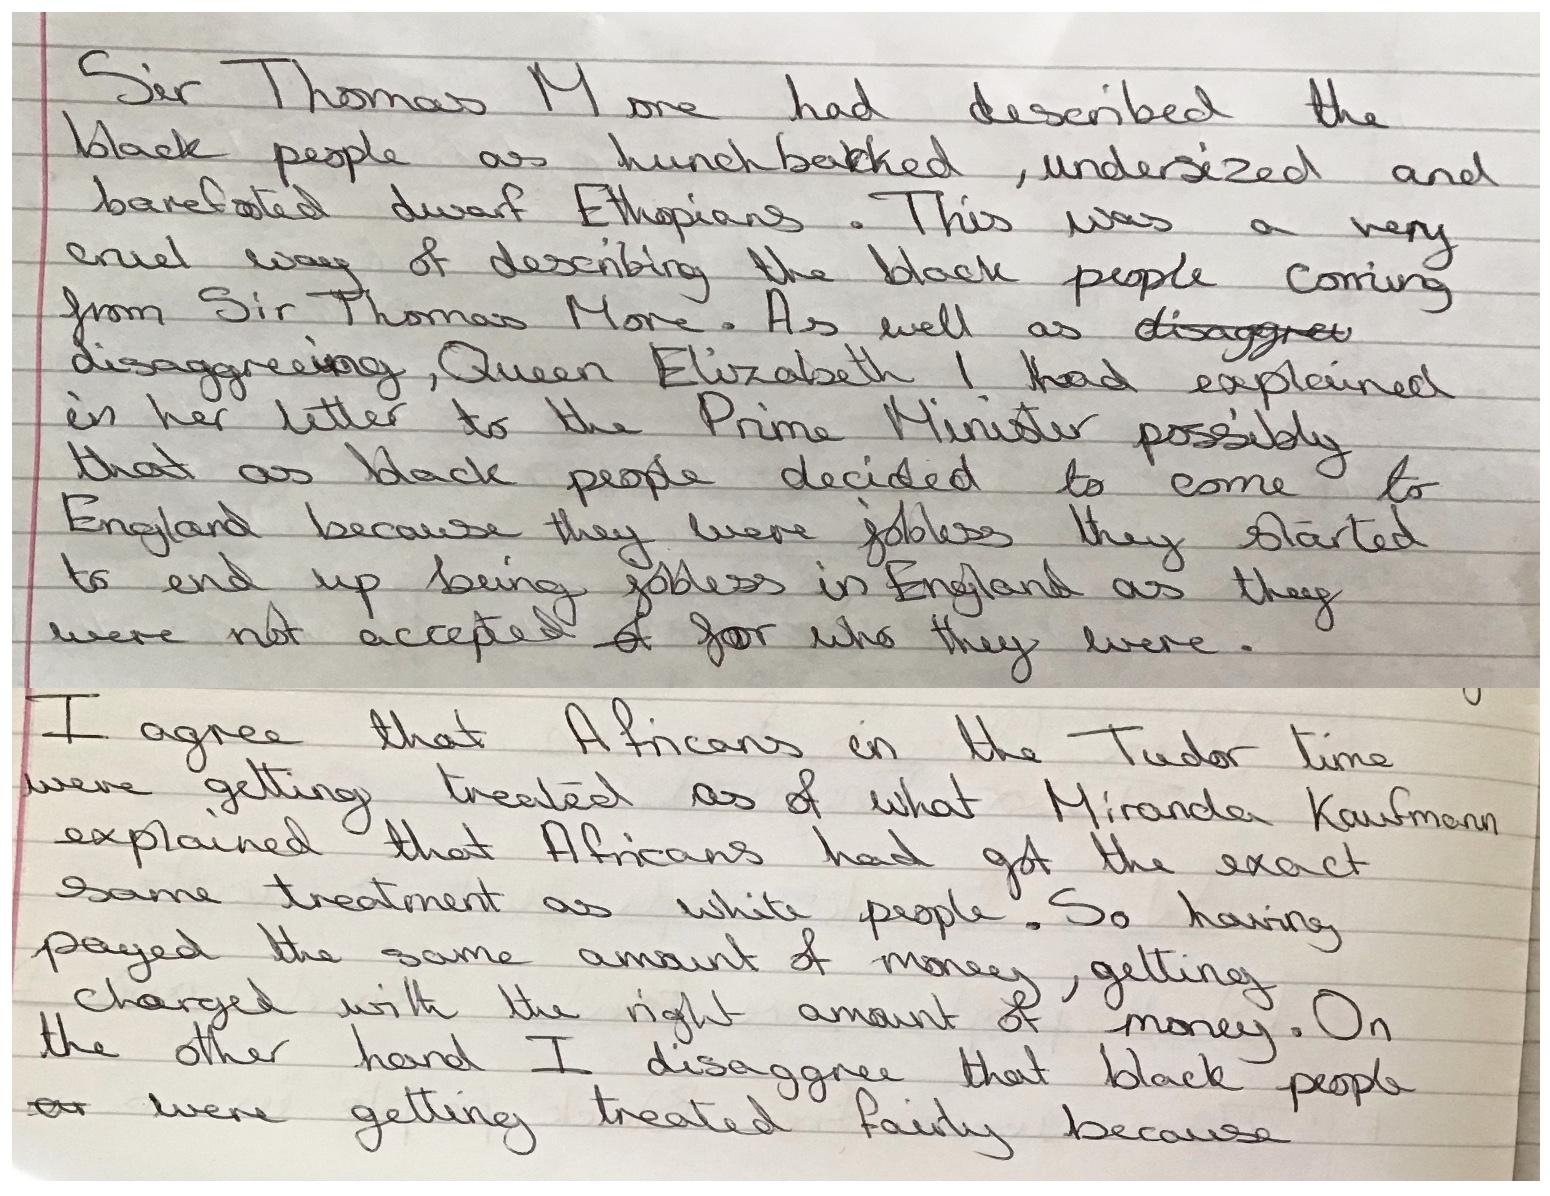 Sir Thomas More had described the
black people as hunchbacked, undersized and
barefooted dwarf Ethopians. This was a very
cruel way of describing the black people coming
from Sir Thomas More. As well as disaggree
disaggreeing, Queen Elizabeth I had explained
in her letter to the Prime Minister possibly
that as black people decided to come to
England because they were jobless they started
to end up being jobless in England as they
were not accepted of for who they were.
I agree that Africans in the Tudor time
were getting treated as of what Miranda Kaufmann
explained that Africans had got the exact
same treatment as white people. So having
payed the same amount of money, getting
charged with the right amount of money. On
the other hand I disaggree that black people
were getting treated fairly because